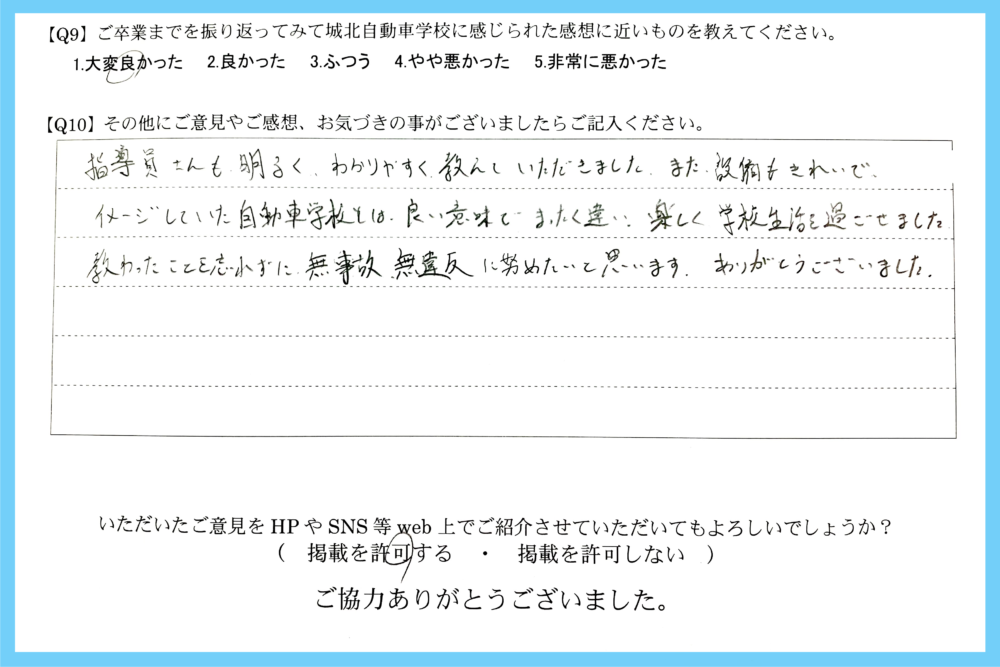 【Q9】ご卒業までを振り返ってみて城北自動車学校に感じられた感想に近いものを教えてください。
1.大変良かった 2.良かった 3.ふつう 4.やや悪かった 5.非常に悪かった
【Q10】その他にご意見やご感想、お気づきの事がございましたらご記入ください。
指導員さんも明るく、わかりやすく教えていただきました。また、設備もきれいで、
イメージしていた自動車学校とは、良い意味でまったく違い、楽しく学校生活を過ごせました。
教わったことを忘れずに、無事故、無違反に努めたいと思います。ありがとうございました。
いただいたご意見をHPやSNS等web上でご紹介させていただいてもよろしいでしょうか？
（ 掲載を許可する ・ 掲載を許可しない ）
ご協力ありがとうございました。